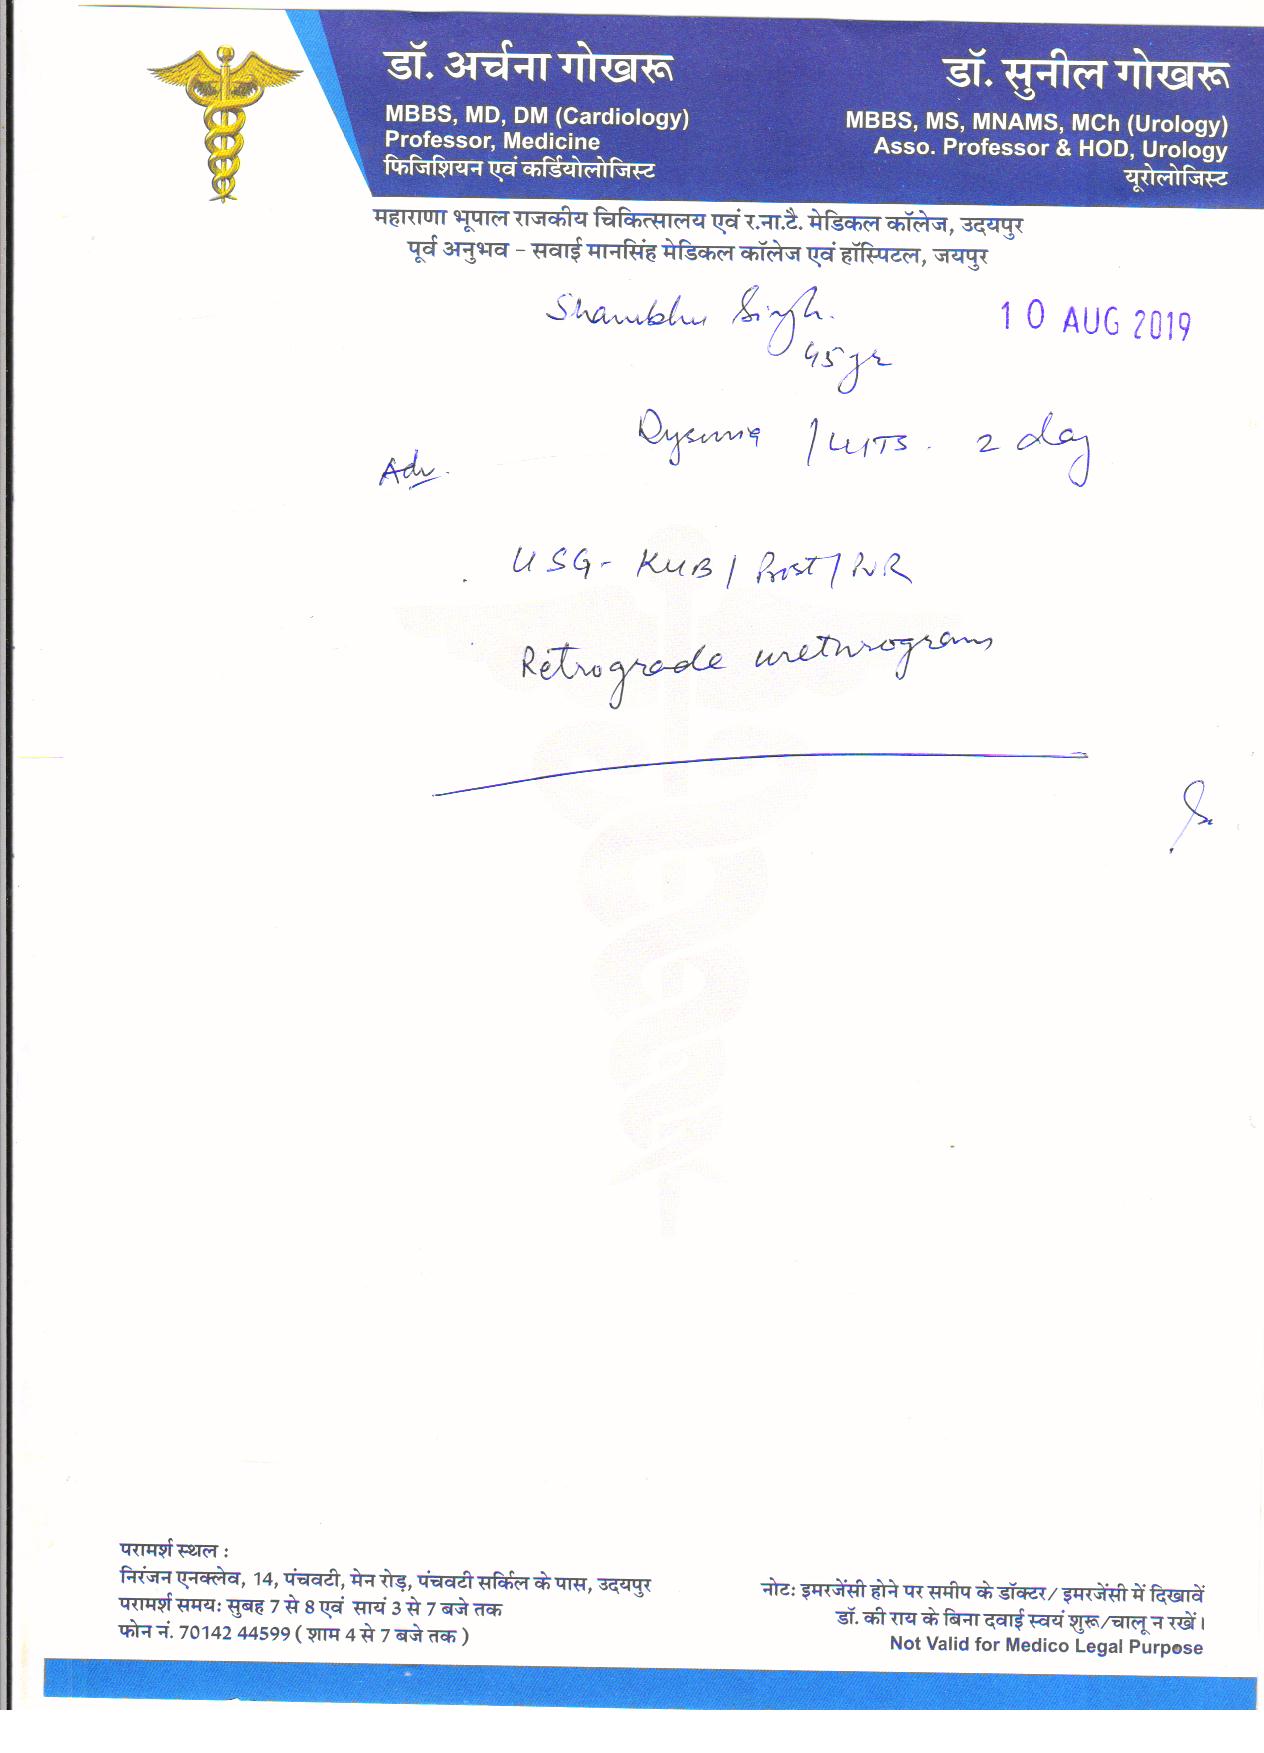 डॉ. अर्चना गोखरू
MBBS, MD, DM (Cardiology)
Professor, Medicine
फिजिशियन एवं कर्डियोलोजिस्ट
डॉ. सुनील गोखरू
MBBS, MS, MNAMS, MCh (Urology)
Asso. Professor & HOD, Urology
यूरोलोजिस्ट
महाराणा भूपाल राजकीय चिकित्सालय एवं र.ना.टै. मेडिकल कॉलेज, उदयपुर
पूर्व अनुभव - सवाई मानसिंह मेडिकल कॉलेज एवं हॉस्पिटल, जयपुर
Shambhu Singh.
10 AUG 2019
45 yr
/ LUTS. 2 day
Adv.
USG- KUB / Prost / PVR
Retrograde urethrogram
परामर्श स्थल :
निरंजन एनक्लेव, 14, पंचवटी, मेन रोड़, पंचवटी सर्किल के पास, उदयपुर
परामर्श समय: सुबह 7 से 8 एवं सायं 3 से 7 बजे तक
फोन नं. 70142 44599 ( शाम 4 से 7 बजे तक )
नोट: इमरजेंसी होने पर समीप के डॉक्टर/ इमरजेंसी में दिखावें
डॉ. की राय के बिना दवाई स्वयं शुरू/चालू न रखें।
Not Valid for Medico Legal Purpose